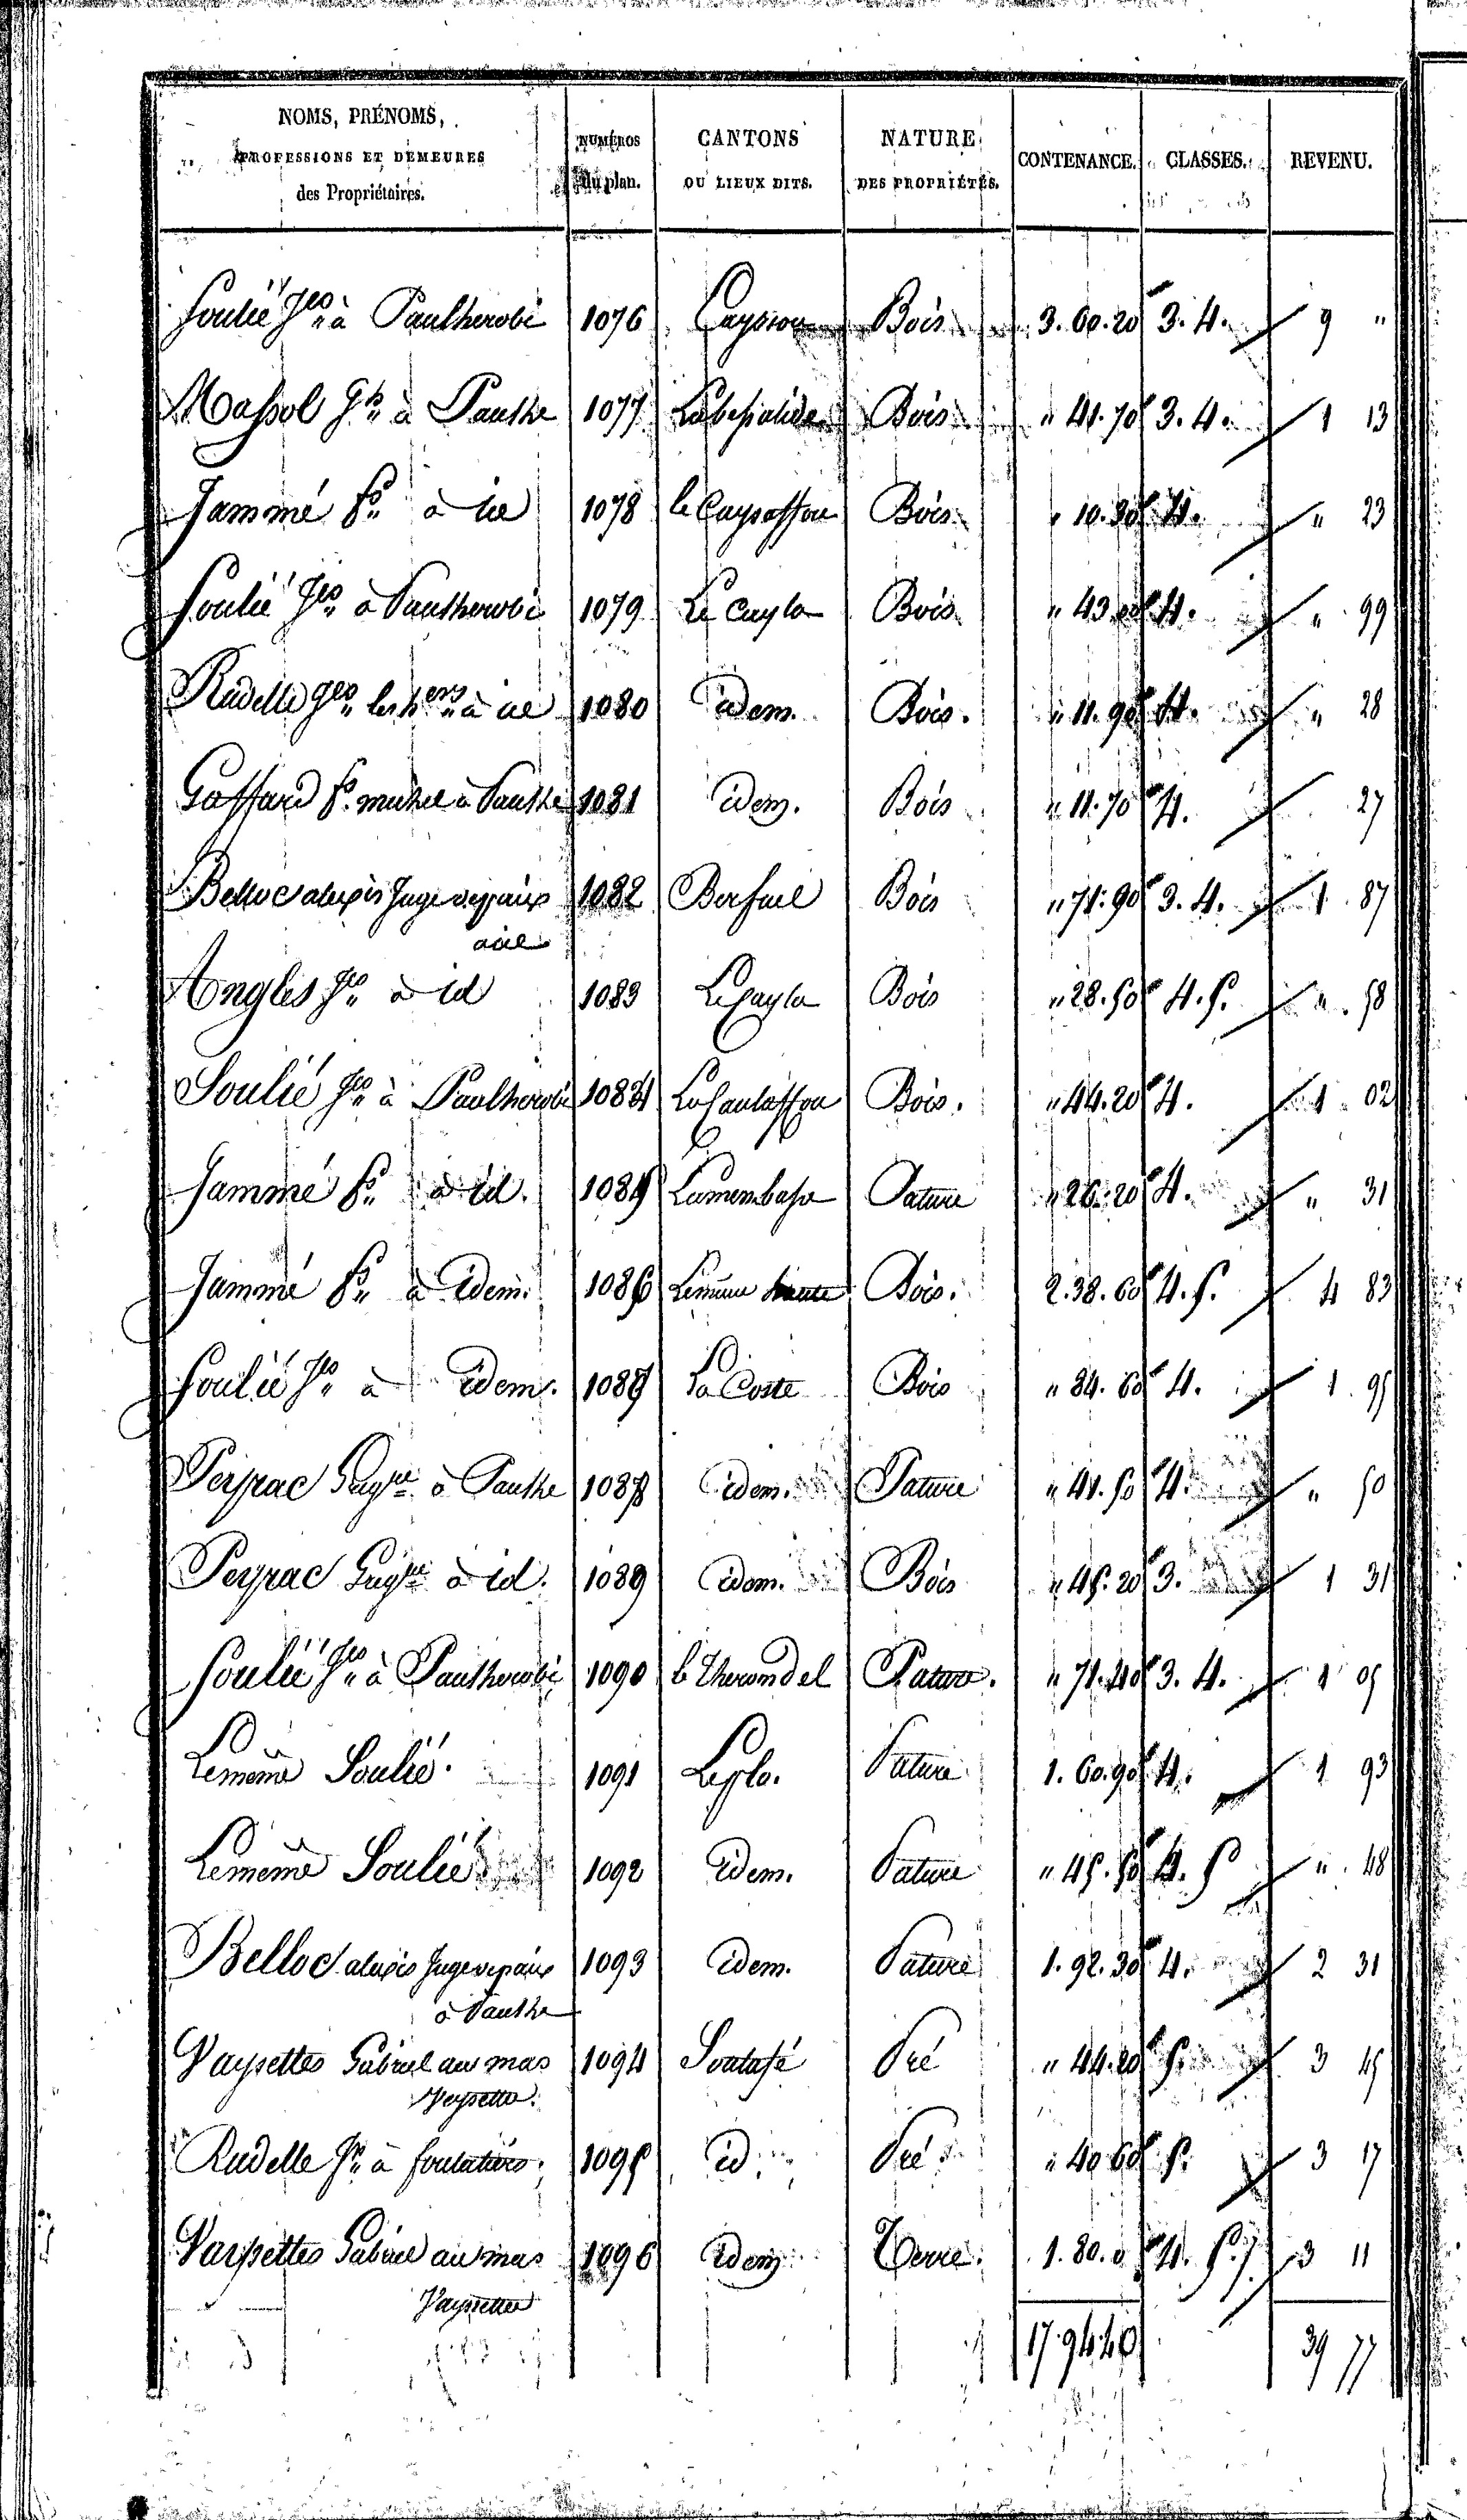 NOMS, PRÉNOMS, PROFESSIONS ET DEMEURES des Propriétaires. | NUMÉROS du plan. | CANTONS OU LIEUX DITS. | NATURE DES PROPRIÉTÉS. | CONTENANCE. | CLASSES. | REVENU.
Soulié Jes à Paulherobi 1076 Bois 3. 60. 20 3. 4. 9 "
Massol à Paulhe 1077 Bois " 41. 70 3. 4. 1 13
Jammé fs à id 1078 Bois " 10. 4. " 23
Soulié Jes à Paulherobi 1079 Le Cayla Bois " 43. 4. " 99
Rudelle Jes les hers à id 1080 idem. Bois. " 11. 90 4. " 28
Gaffard fs michel à Paulhe 1081 idem. Bois " 11. 70 4. 27
Belloc alexis Juge depaix 1082 Bois " 71. 90 3. 4. 1 87
aid
Anglès Jes à id 1083 Le Cayla Bois " 28. 50 4. 5. " 58
Soulié Jes à Paulherobi 1084 Bois. " 44. 20 4. 1 02
Jammé fs à id. 1085 Pature " 26. 20 4. " 31
Jammé fs à idem. 1086 Bois. 2. 38. 60 4. 5. 4 83
Soulié Jes à idem. 1087 La Coste Bois " 84. 60 4. 1 95
Peyrac à Paulhe 1088 idem. Pature " 41. 50 4. " 50
Peyrac à id. 1089 idem. Bois " 45. 20 3. 1 31
Soulié Jes à Paulherobi 1090 le Therondel Pature. " 71. 40 3. 4. 1 05
Lemême Soulié. 1091 Leplo. Pature 1. 60. 90 4. 1 93
Lemême Soulié 1092 idem. Pature " 45. 50 4. 5 " 48
Belloc alexis Juge depaix 1093 idem. Pature 1. 92. 30 4. 2 31
à Paulhe
Vayssettes Gabriel au mas 1094 Pré " 44. 20 5. 3 45
Vayssettes.
Rudelle Jes à 1095 id Pré " 40 60 5. 3 17
Vayssettes Gabriel au mas 1096 idem Terre. 1. 80. 0 4. 5. 3 11
Vayssettes
17. 94. 40 39 77